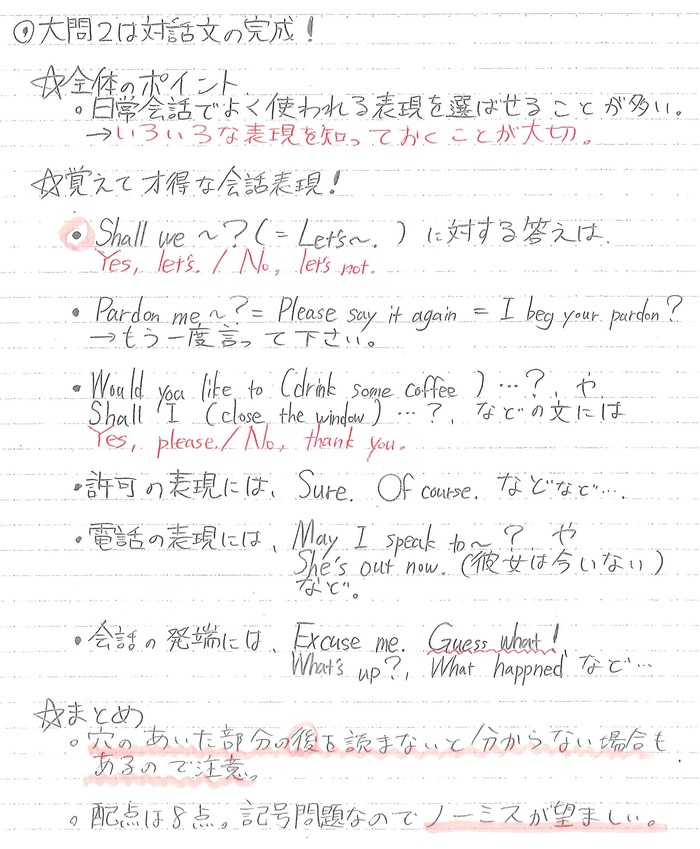 大問2は対話文の完成！
☆全体のポイント
。日常会話でよく使われる表現を選ばせることが多い。
→いろいろな表現を知っておくことが大切。
☆覚えてオ得な会話表現！
• Shall we ～？(= Let's～. ) に対する答えは、
Yes, let's. / No, let's not.
• Pardon me ～? = Please say it again = I beg your pardon?
→もう一度言って下さい。
• Would you like to (drink some coffee ) …?, や
Shall I (close the window) …?, などの文には
Yes, please. / No, thank you.
• 許可の表現には、Sure. Of course. などなど….
• 電話の表現には、May I speak to～? や
She's out now. (彼女は今いない)
など。
• 会話の発端には、Excuse me. Guess what!
What's up?, What happned など…
☆まとめ
。穴のあいた部分の後を読まないと分からない場合も
あるので注意。
。配点は8点。記号問題なのでノーミスが望ましい。